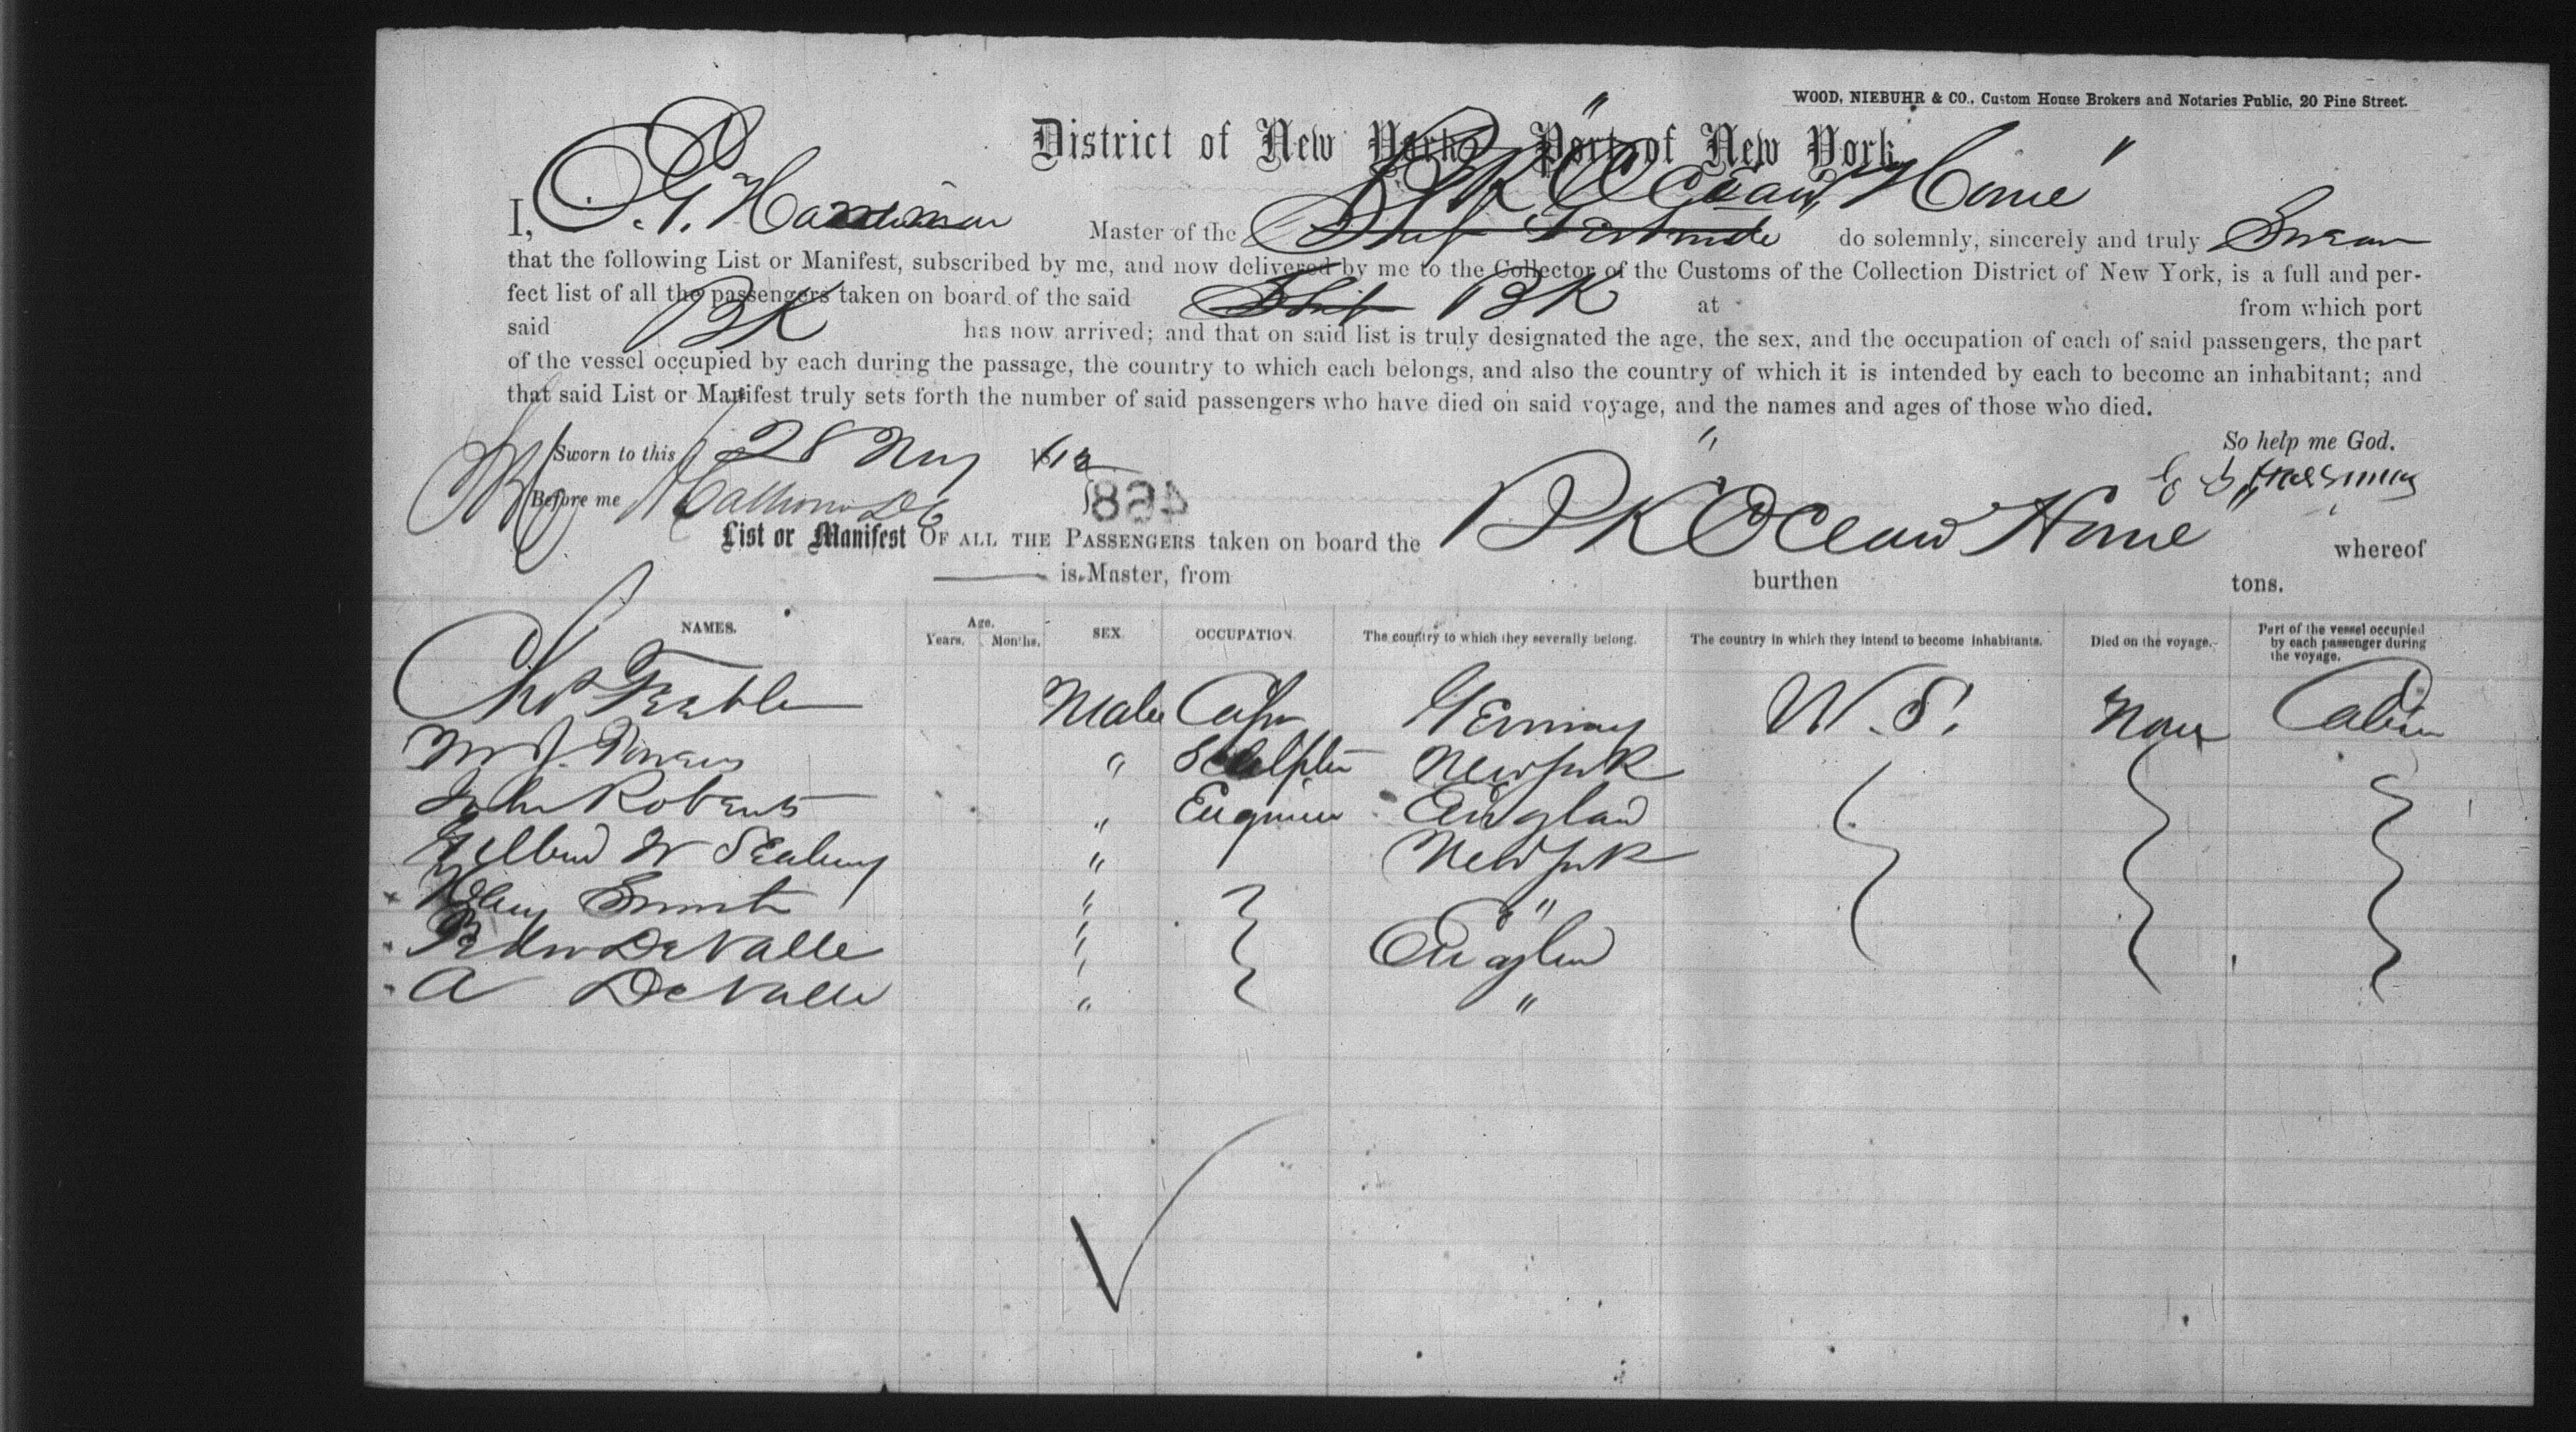 WOOD, NIEBUHR & CO., Custom House Brokers and Notaries Public, 20 Pine Street.
District of New York Port of New York
" BK Ocean Home "
I, Master of the Ship do solemnly, sincerely and truly Swear
that the following List or Manifest, subscribed by me, and now delivered by me to the Collector of the Customs of the Collection District of New York, is a full and per-
fect list of all the passengers taken on board of the said Ship BK at from which port
said BK has now arrived; and that on said list is truly designated the age, the sex, and the occupation of each of said passengers, the part
of the vessel occupied by each during the passage, the country to which each belongs, and also the country of which it is intended by each to become an inhabitant; and
that said List or Manifest truly sets forth the number of said passengers who have died on said voyage, and the names and ages of those who died.
So help me God.
Sworn to this 28
Before me
468
List or Manifest OF ALL THE PASSENGERS taken on board the BK "Ocean Home" whereof
is Master, from burthen tons.
NAMES. Age. Years. Months. SEX. OCCUPATION. The country to which they severally belong. The country in which they intend to become inhabitants. Died on the voyage. Part of the vessel occupied by each passenger during the voyage.
Male Germany U.S. None Cabin
" New York
John Roberts " Engineer England
" New York
Smith " "
Pedro DeValle " England
A DeValle " "